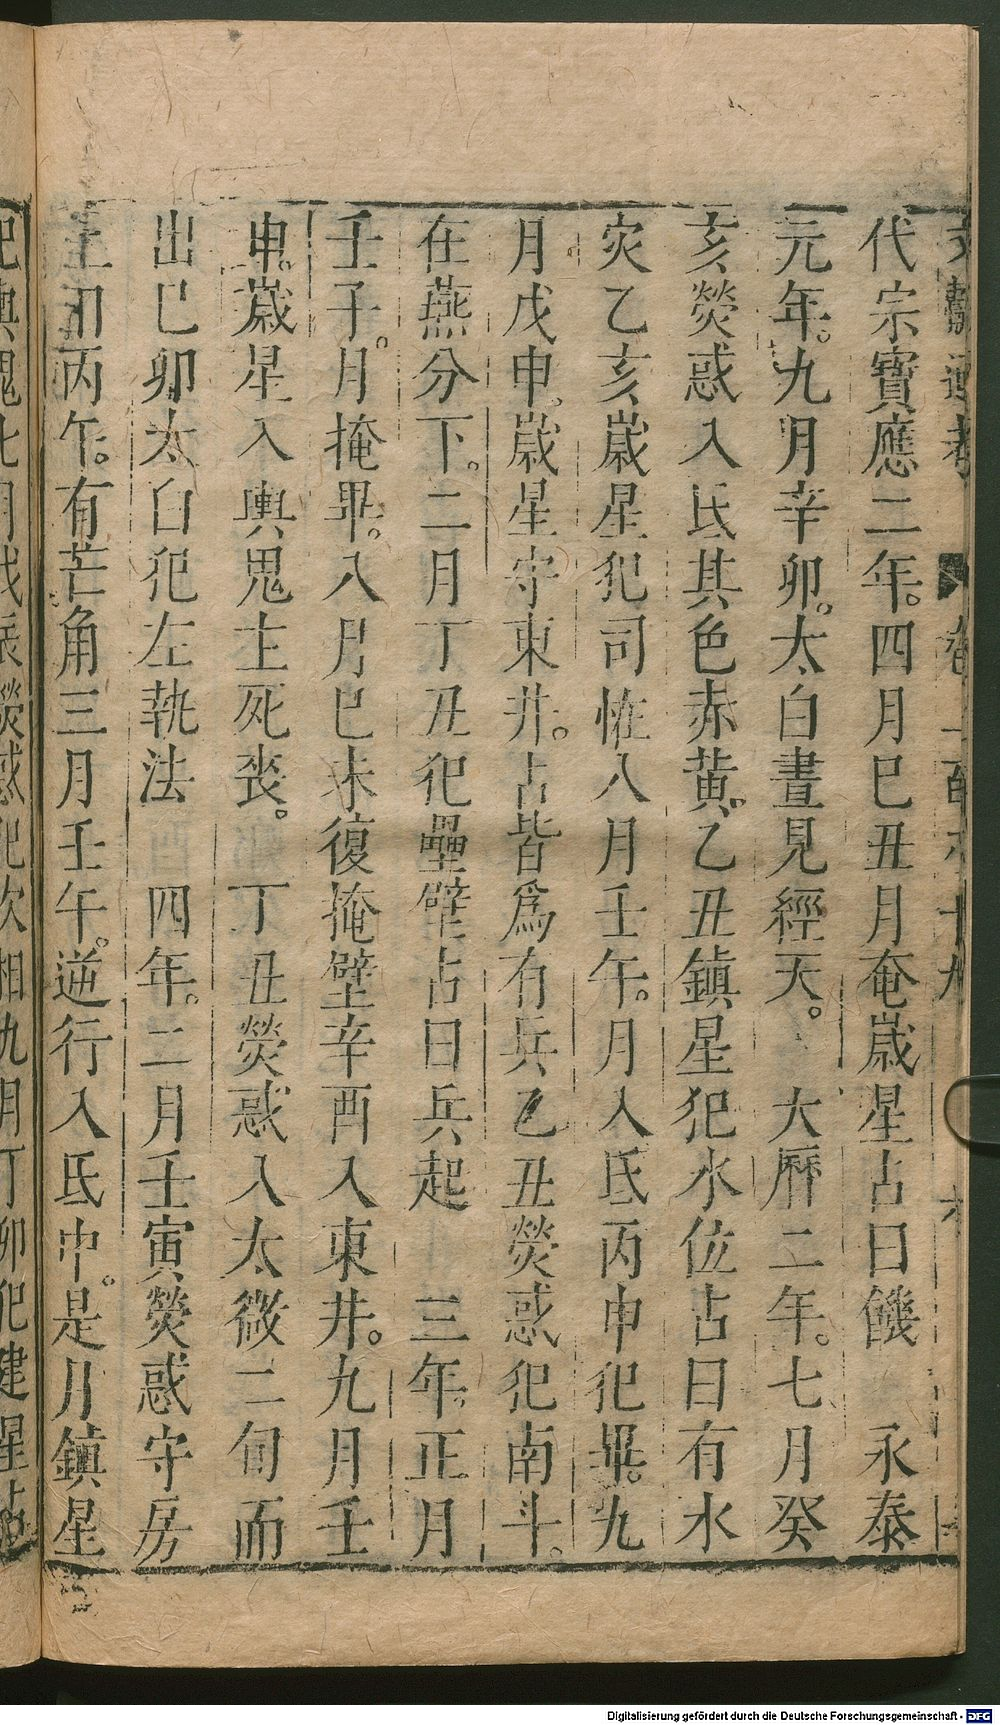 代宗寶應二年。四月巳丑月奄歲星占曰饑　永泰
元年。九月辛卯。太白晝見經天。　大曆二年。七月癸
亥熒惑入氐其色赤黃。乙丑鎮星犯水位占曰有水
灾乙亥歲星犯司怪八月壬午。月入氐丙申犯畢。九
月戊申。歲星守東井。占皆爲有兵乙丑熒惑犯南斗。
在燕分下。二月丁丑犯壘壁占曰兵起　三年。正月
壬子。月掩畢。八月巳未復掩壁辛酉入東井。九月壬
申。歲星入輿鬼主死喪。　丁丑熒惑入太微二旬而
出巳卯太白犯左執法　四年。二月壬寅熒惑守房
上相丙午。有芒角三月壬午。逆行入氐中。是月鎮星
犯輿鬼七月戊辰熒惑犯次相九月丁卯犯建星
Digitalisierung gefördert durch die Deutsche Forschungsgemeinschaft - DFG